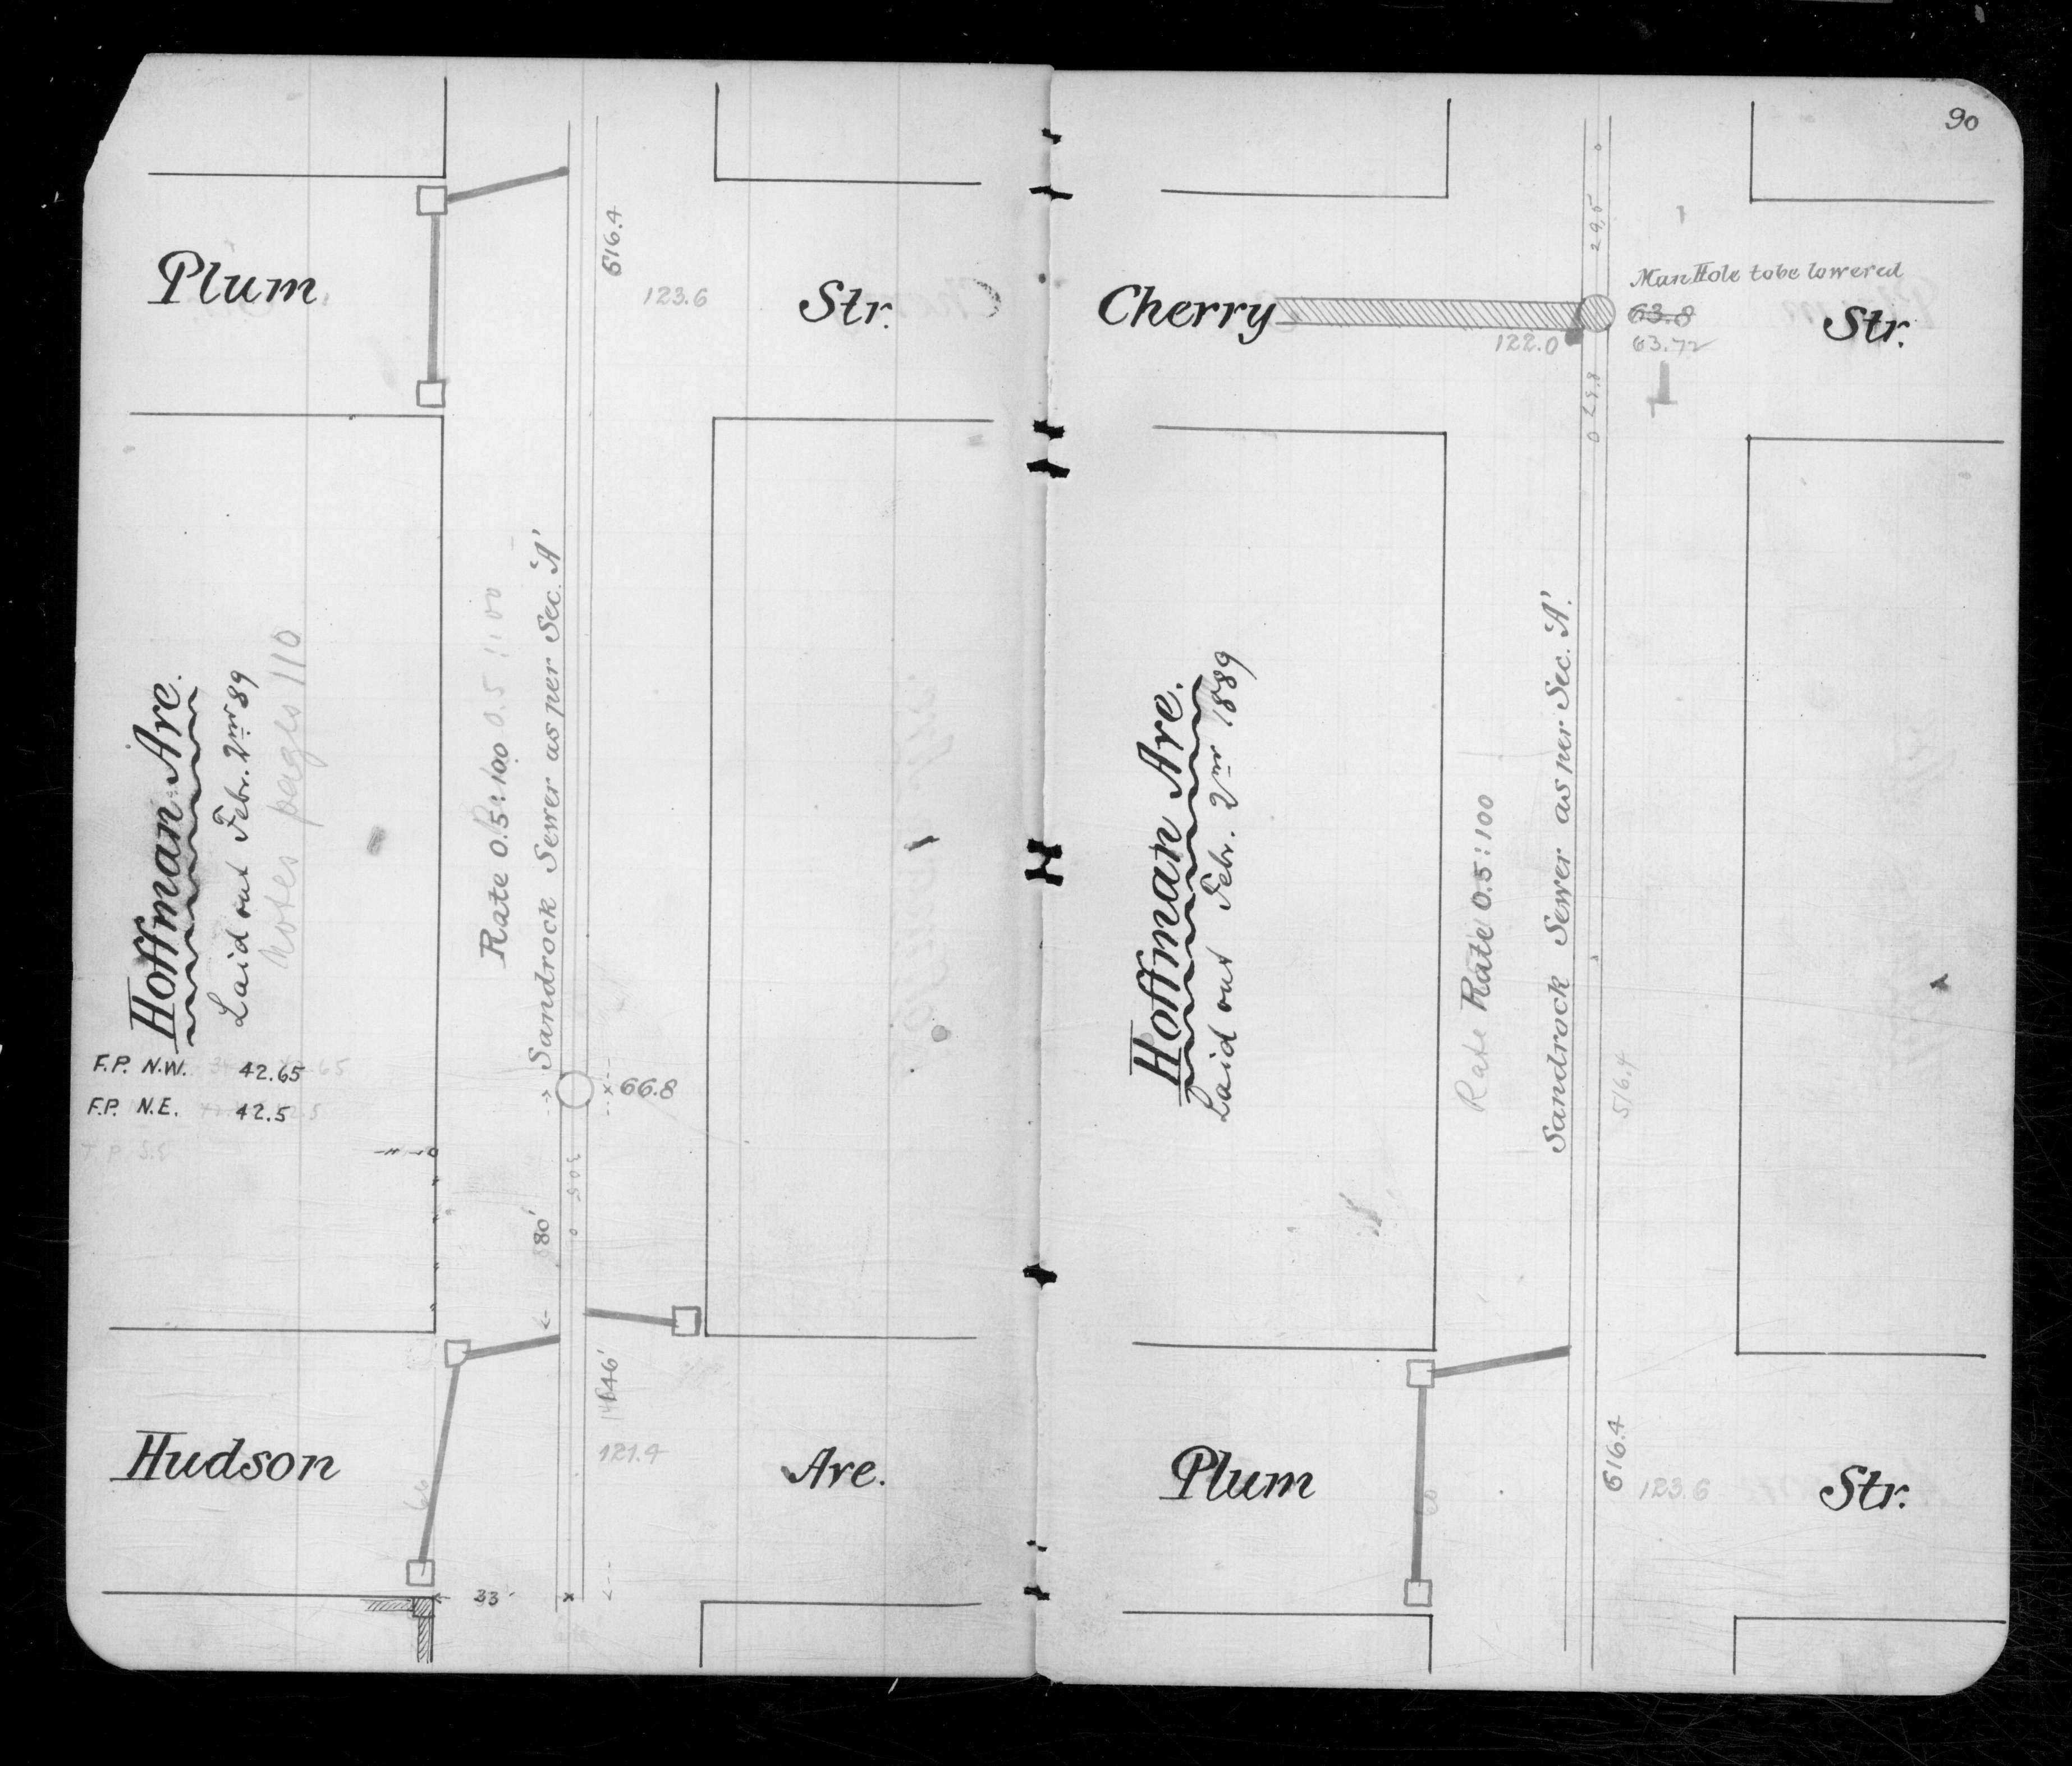 Plum
516.4
123.6
Str.
Hoffman Ave.
Laid out Febr. 2nd 89
Notes pages 110
Rate 0.5:100 0.5:100
Sandrock Sewer as per Sec. 'A'
F.P. N.W. 42.65
F.P. N.E. 42.5
66.8
80'
146'
121.4
Hudson
Ave.
66
33'
90
29,5
Man Hole to be lowered
Cherry
63.8
63.72
122.0
Str.
Hoffman Ave.
Laid out Febr. 2nd 1889
Rate Rate 0.5:100
Sandrock Sewer as per Sec. 'A'.
516.4
Plum
60
516.4
123.6
Str.